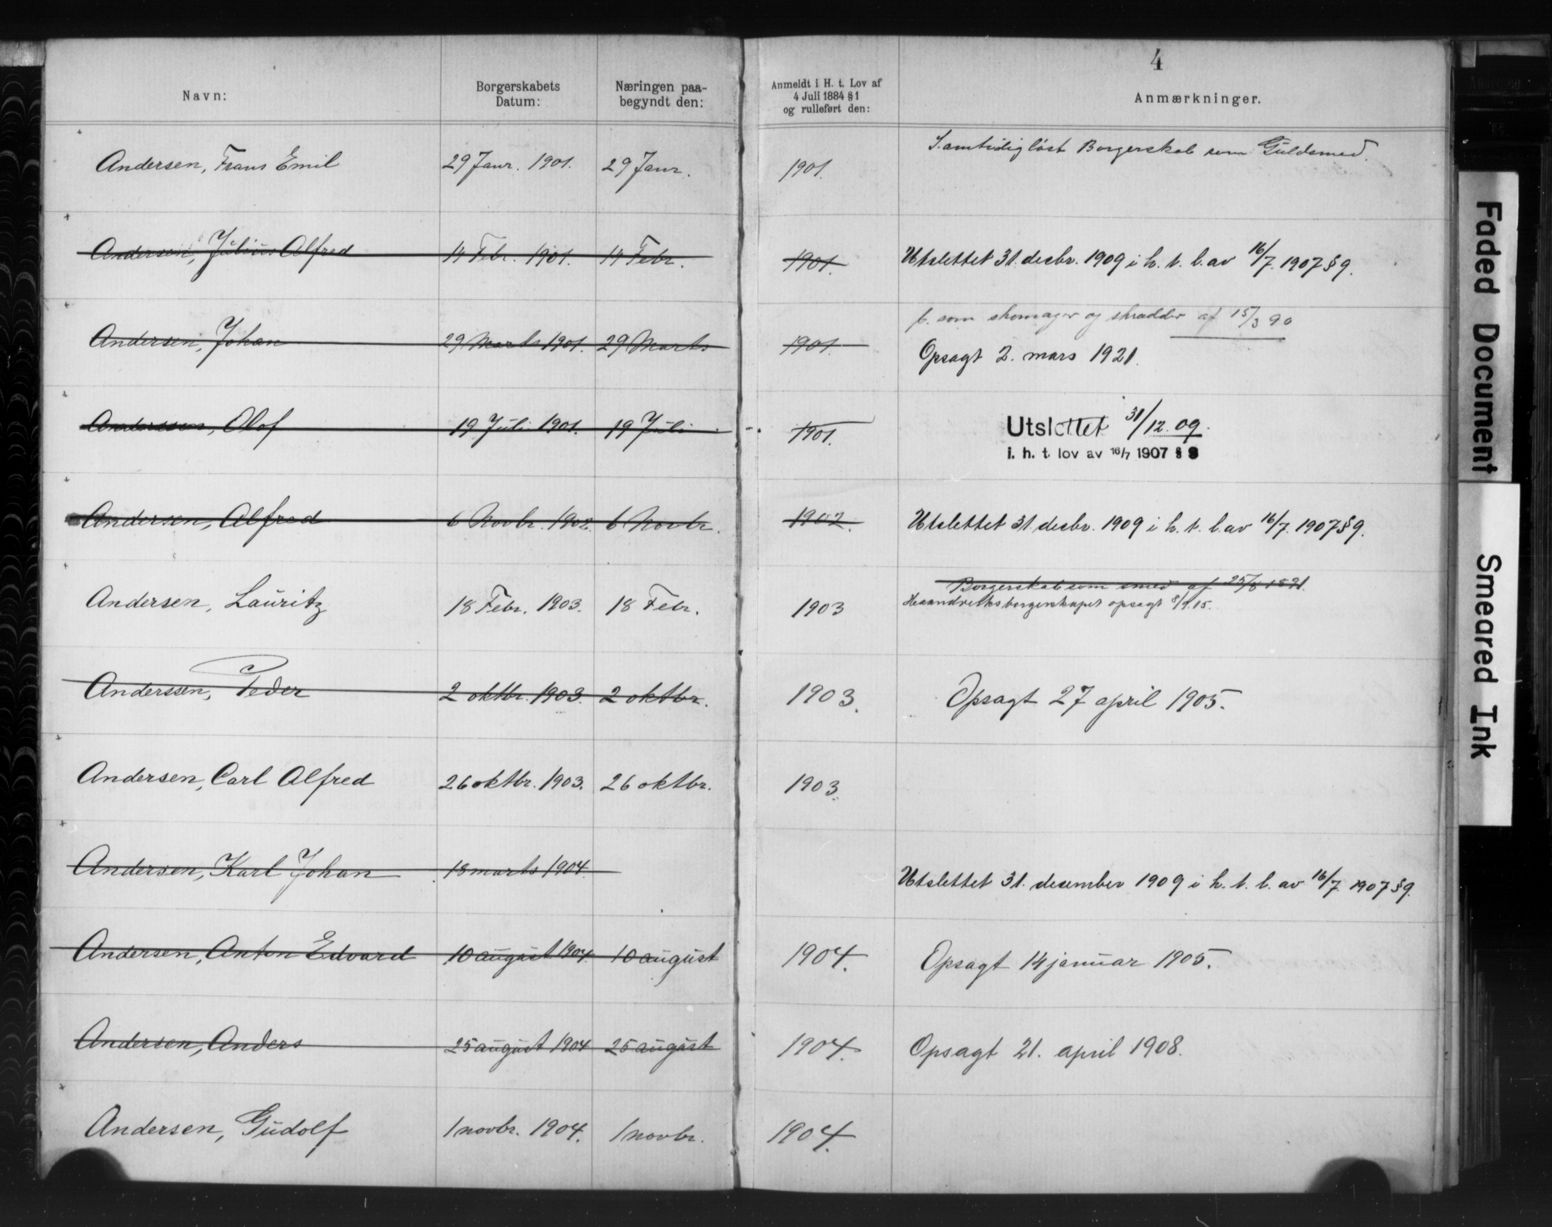 4
Navn: Borgerskabets Datum: Næringen paabegyndt den: Anmeldt i H. t. Lov af 4 Juli 1884 § 1 og rulleført den: Anmærkninger.
Samtidig løst Borgerskab som Guldsmed.
Andersen, Frans Emil 29 Janr. 1901. 29 Janr. 1901.
Andersen, Julius Alfred 14 Febr. 1901. 14 Febr. 1901. Utslettet 31. desbr. 1909 i h. t. l. av 16/7 1907 § 9.
f. som skomager og skrædder af 15/3 90
Andersen, Johan 29 Marts 1901. 29 Marts 1901. Opsagt 2. mars 1921.
Anderssen, Olof 19 Juli 1901. 19 Juli 1901. Utslettet 31/12 09.
i. h. t. lov av 16/7 1907 § 9
Andersen, Alfred 6 Novbr. 1902. 6 Novbr. 1902. Utslettet 31 desbr. 1909 i h. t. l. av 16/7 1907 § 9.
Borgerskab som smed af 25/8 1891.
Andersen, Lauritz 18 Febr. 1903. 18 Febr. 1903 Haandverksborgerskapet opsagt
Anderssen, Peder 2 oktbr. 1903. 2 oktbr. 1903. Opsagt 27 april 1905.
Andersen, Carl Alfred 26 oktbr. 1903. 26 oktbr. 1903.
Andersen, Karl Johan 18 marts 1904. Utslettet 31. desember 1909 i h. t. l. av 16/7 1907 § 9.
Andersen, Anton Edvard 10 august 1904. 10 august 1904. Opsagt 14 januar 1905.
Andersen, Anders 25 august 1904 25 august 1904. Opsagt 21. april 1908.
Andersen, Gudolf 1 novbr. 1904. 1 novbr. 1904.
Faded Document
Smeared Ink